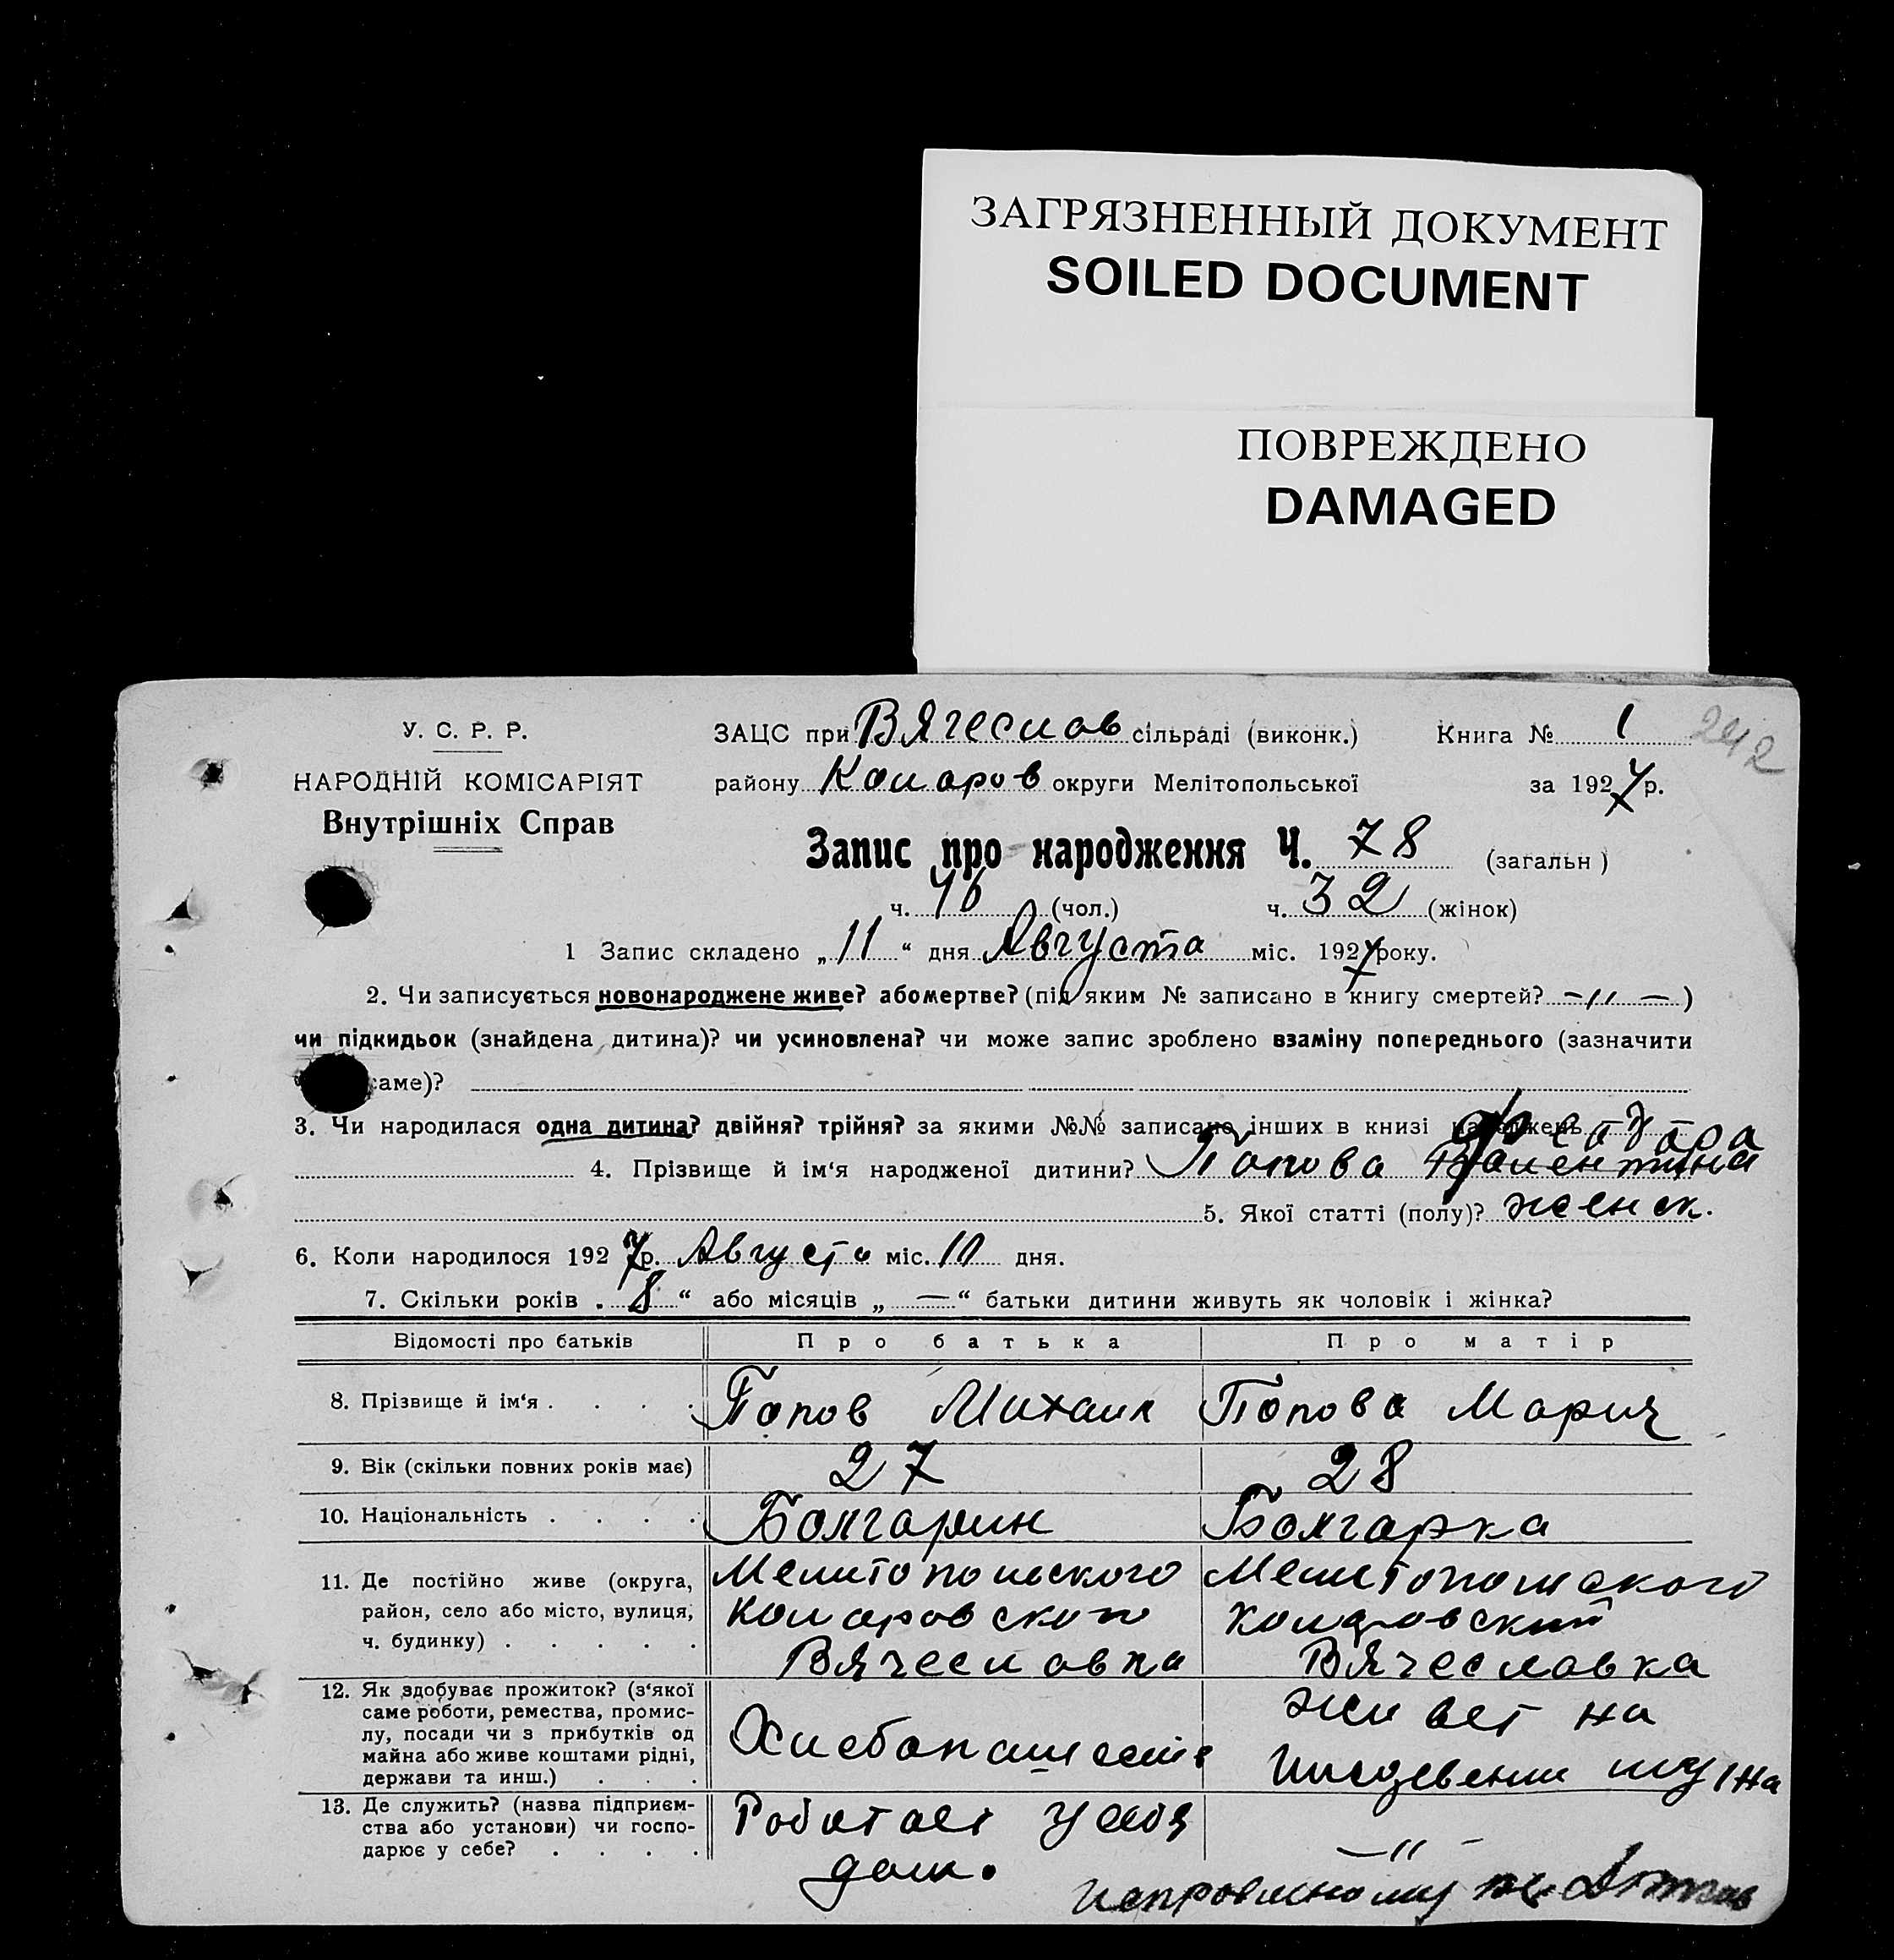 ЗАГРЯЗНЕННЫЙ ДОКУМЕНТ
SOILED DOCUMENT
ПОВРЕЖДЕНО
DAMAGED
У. С. Р. Р.
НАРОДНІЙ КОМІСАРІЯТ
Внутрішніх Справ
ЗАЦС при Вячеслав сільраді (виконк.) Книга № 1
242
району Коларов округи Мелітопольської за 1927 р.
Запис про народження Ч. 78 (загальн )
ч. 46 (чол.) ч. 32 (жінок)
1 Запис складено „ 11 “ дня Августа міс. 1927 року.
2. Чи записується новонароджене живе? або мертве? (під яким № записано в книгу смертей? -//- )
чи підкидьок (знайдена дитина)? чи усиновлена? чи може запис зроблено взаміну попереднього (зазначити
саме)?
3. Чи народилася одна дитина? двійня? трійня? за якими №№ записано інших в книзі народжень
4. Прізвище й ім‘я народженої дитини? Попова Валентина
5. Якої статті (полу)? женск.
6. Коли народилося 1927 р. Августа міс. 10 дня.
7. Скільки років „ 8 “ або місяців „ — “ батьки дитини живуть як чоловік і жінка?
Відомості про батьків Про батька Про матір
8. Прізвище й ім‘я . . . . Попов Михаил Попова Мария
9. Вік (скільки повних років має) 27 28
10. Національність . . . . Болгарин Болгарка
11. Де постійно живе (округа,
район, село або місто, вулиця,
ч. будинку) . . . . .
Мелитопольского
Коларовского
Вячеславка
Мелитопольского
Коларовского
Вячеславка
12. Як здобуває прожиток? (з‘якої
саме роботи, ремества, промис-
лу, посади чи з прибутків од
майна або живе коштами рідні,
держави та инш.) . . .
Хлебопашество
живет на
иждевении мужа
13. Де служить? (назва підприєм-
ства або установи) чи госпо-
дарює у себе? . . . .
Работает у себя
дом.
-//-
Исправленному